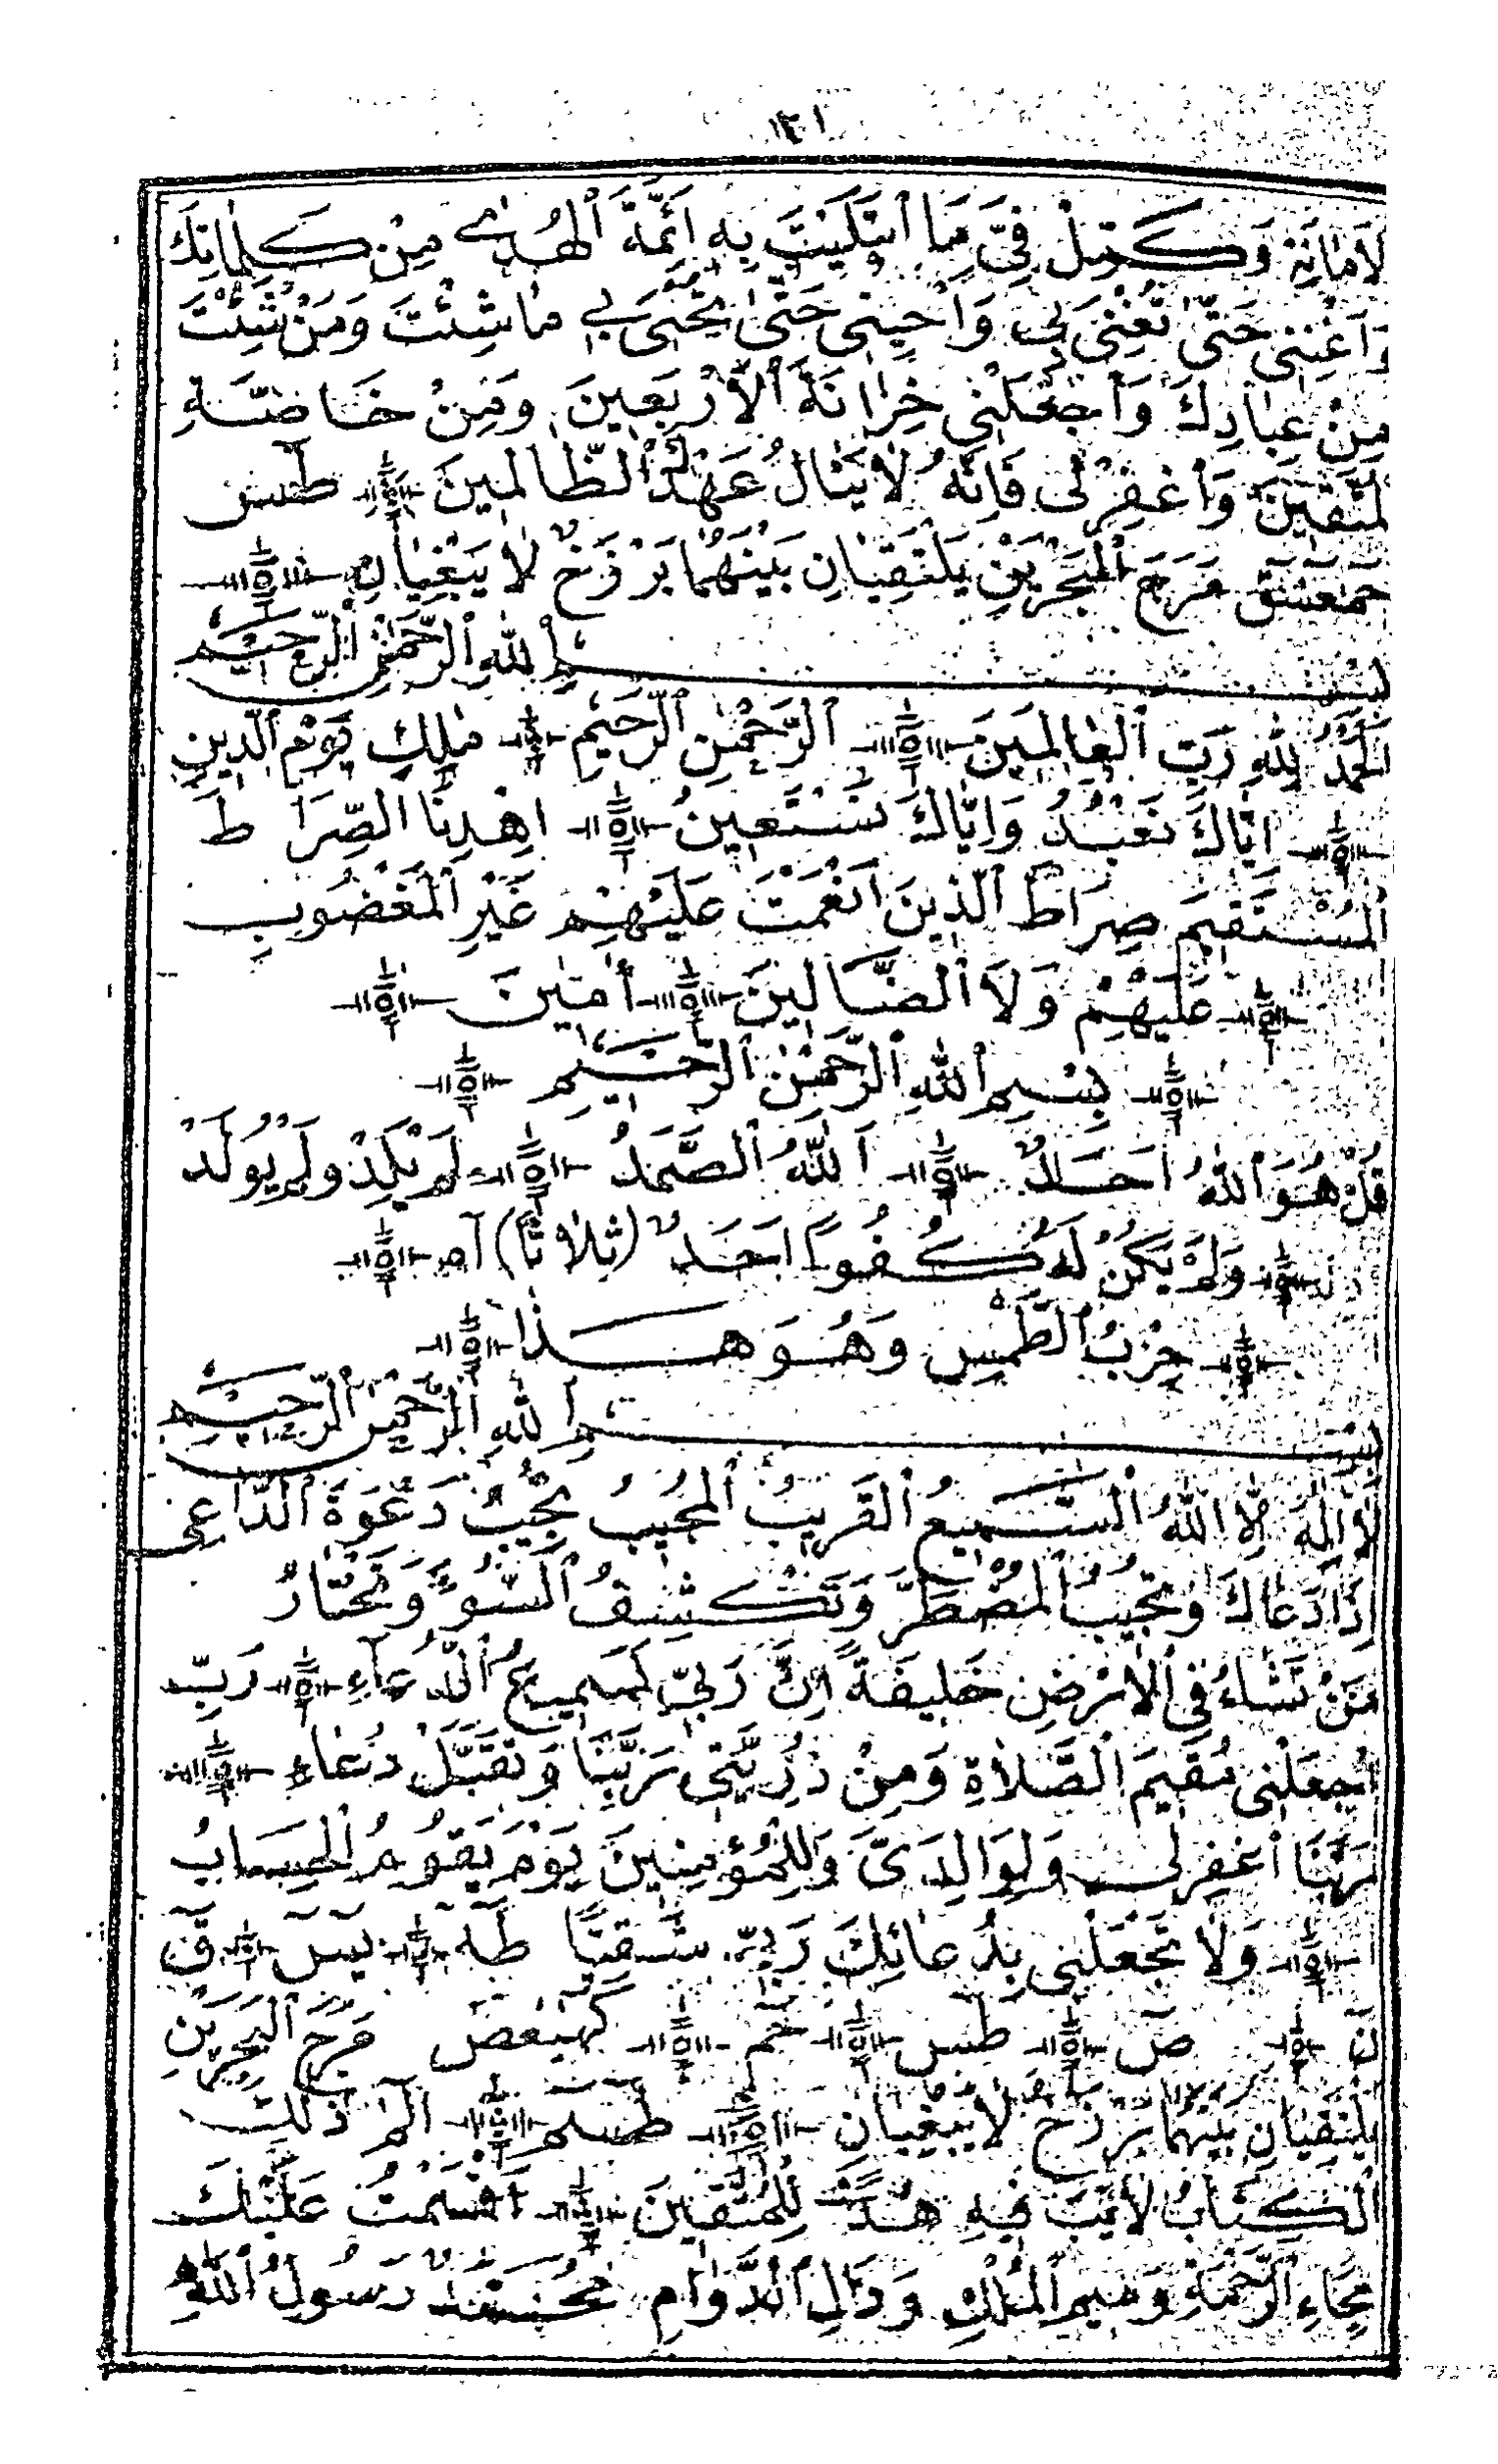 ١٢١
لَامَانَةِ وَكَمِّلْ فِيَّ مَا ابْتَلَيْتَ بِهِ اَئِمَّةَ الْهُدٰى مِنْ كَلِمَاتِكَ
وَاَغْنِنِى حَتّٰى تُغْنِىَ بِى وَاَحْيِنِى حَتّٰى تُحْيِىَ بِى مَا شِئْتَ وَمَنْ شِئْتَ
مِنْ عِبَادِكَ وَاجْعَلْنِى خِزَانَةَ الْاَرْبَعِينَ وَمِنْ خَاصَّةِ
لْمُتَّقِينَ وَاغْفِرْ لِى فَاِنَّهُ لَا يَنَالُ عَهْدُكَ الظَّالِمِينَ طٰسٓ
حٓمٓعٓسٓقٓ مَرَجَ الْبَحْرَيْنِ يَلْتَقِيَانِ بَيْنَهُمَا بَرْزَخٌ لَا يَبْغِيَانِ
بِسْمِ اللّٰهِ الرَّحْمٰنِ الرَّحِيمِ
اَلْحَمْدُ لِلّٰهِ رَبِّ الْعَالَمِينَ الرَّحْمٰنِ الرَّحِيمِ مٰلِكِ يَوْمِ الدِّينِ
اِيَّاكَ نَعْبُدُ وَاِيَّاكَ نَسْتَعِينُ اِهْدِنَا الصِّرَاطَ
الْمُسْتَقِيمَ صِرَاطَ الَّذِينَ اَنْعَمْتَ عَلَيْهِمْ غَيْرِ الْمَغْضُوبِ
عَلَيْهِمْ وَلَا الضَّالِّينَ اٰمِينَ
بِسْمِ اللّٰهِ الرَّحْمٰنِ الرَّحِيمِ
قُلْ هُوَ اللّٰهُ اَحَدٌ اَللّٰهُ الصَّمَدُ لَمْ يَلِدْ وَلَمْ يُولَدْ
وَلَمْ يَكُنْ لَهُ كُفُوًا اَحَدٌ (ثَلَاثًا) اهـ
حِزْبُ الطَّمْسِ وَهُوَ هٰذَا
بِسْمِ اللّٰهِ الرَّحْمٰنِ الرَّحِيمِ
لَا اِلٰهَ اِلَّا اللّٰهُ السَّمِيعُ الْقَرِيبُ الْمُجِيبُ تُجِيبُ دَعْوَةَ الدَّاعِى
اِذَا دَعَاكَ وَتُجِيبُ الْمُضْطَرَّ وَتَكْشِفُ السُّوءَ وَتَخْتَارُ
مَنْ تَشَاءُ فِى الْاَرْضِ خَلِيفَةً اِنَّ رَبِّى لَسَمِيعُ الدُّعَآءِ رَبِّ
اجْعَلْنِى مُقِيمَ الصَّلَاةِ وَمِنْ ذُرِّيَّتِى رَبَّنَا وَتَقَبَّلْ دُعَاءِ
رَبَّنَا اغْفِرْ لِى وَلِوَالِدَىَّ وَلِلْمُؤْمِنِينَ يَوْمَ يَقُومُ الْحِسَابُ
وَلَا تَجْعَلْنِى بِدُعَائِكَ رَبِّ شَقِيًّا طٰهٰ يٰسٓ قٓ
نٓ صٓ طٰسٓ حٰمٓ كٓهٰيٰعٓصٓ مَرَجَ الْبَحْرَيْنِ
يَلْتَقِيَانِ بَيْنَهُمَا بَرْزَخٌ لَا يَبْغِيَانِ طٰسٓمٓ الٓمٓ ذٰلِكَ
الْكِتَابُ لَا رَيْبَ فِيهِ هُدًى لِلْمُتَّقِينَ اَقْسَمْتُ عَلَيْكَ
بِحَاءِ الرَّحْمَةِ وَمِيمِ الْمُلْكِ وَدَالِ الدَّوَامِ مُحَمَّدٌ رَسُولُ اللّٰهِ